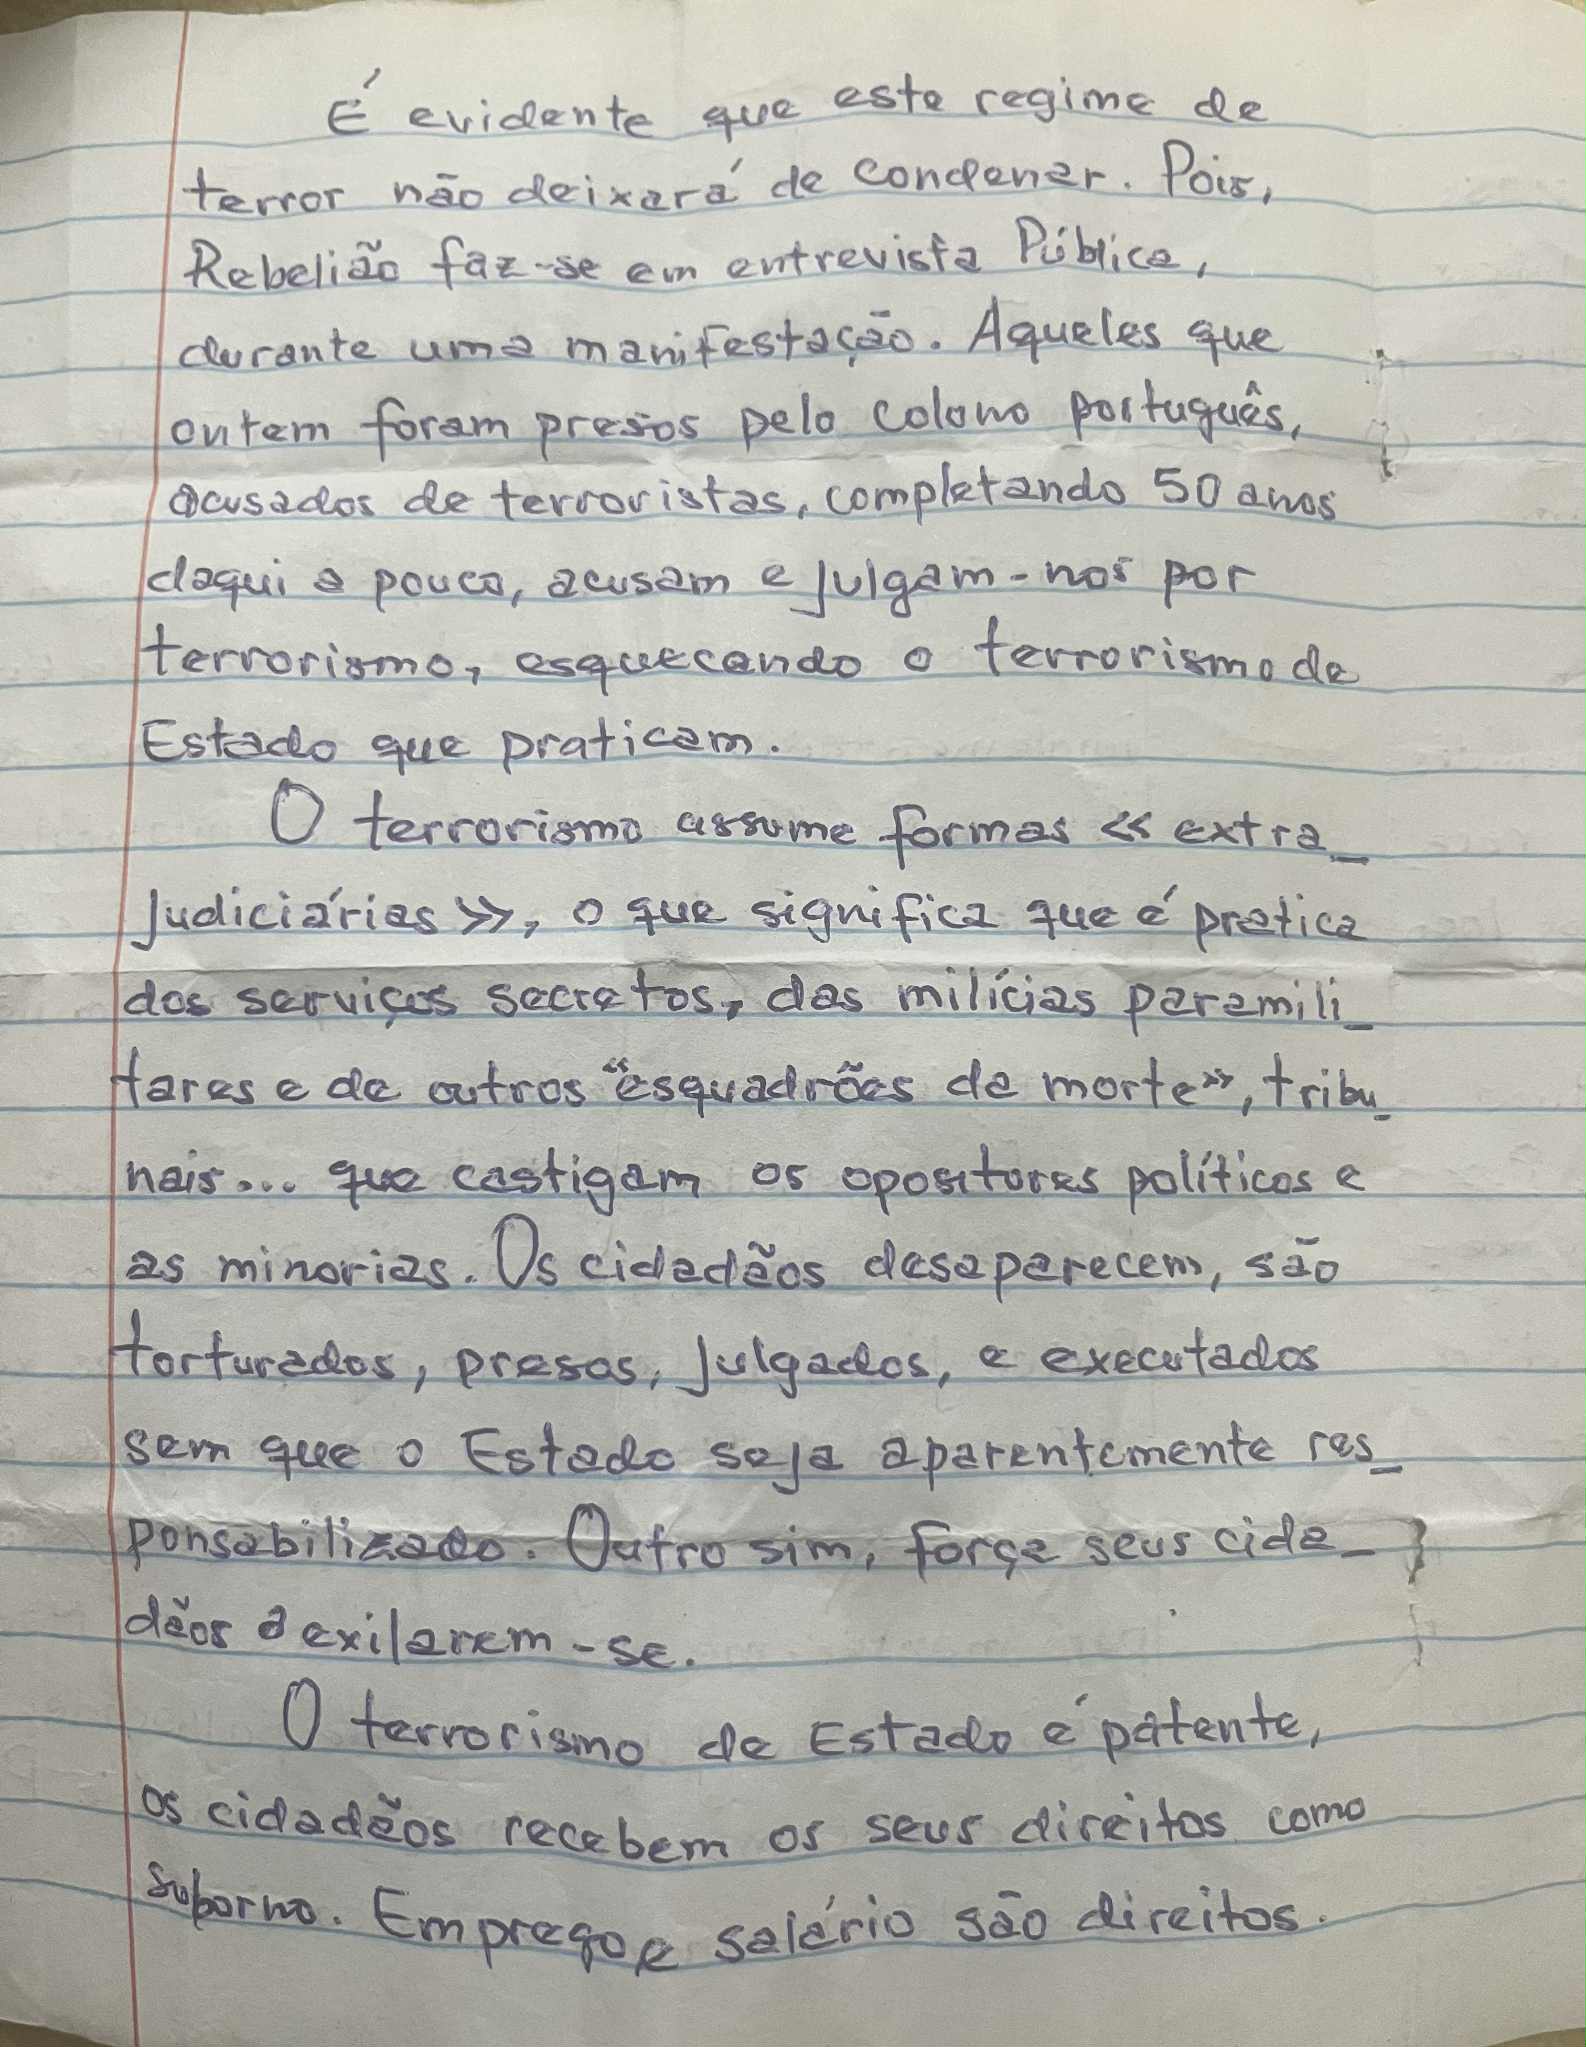 É evidente que este regime de
terror não deixará de condenar. Pois,
Rebelião faz-se em entrevista Pública,
durante uma manifestação. Aqueles que
ontem foram presos pelo colono português,
acusados de terroristas, completando 50 anos
daqui a pouco, acusam e julgam-nos por
terrorismo, esquecendo o terrorismo de
Estado que praticam.
O terrorismo assume formas << extra_
judiciárias >>, o que significa que é pratica
dos serviços secretos, das milícias paramili_
tares e de outros "esquadrões de morte", tribu_
nais... que castigam os opositores políticos e
as minorias. Os cidadãos desaparecem, são
torturados, presos, julgados, e executados
sem que o Estado seja aparentemente res_
ponsabilizado. Outro sim, força seus cida_
dãos a exilarem-se.
O terrorismo de Estado é patente,
os cidadãos recebem os seus direitos como
suborno. Emprego e salário são direitos.